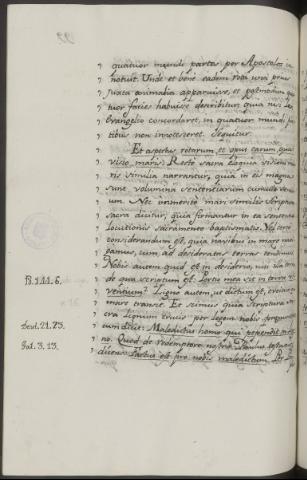 quatuor mundi partes per Apostolos in
notuit. Unde et bene eadem rota una prius
juxta animalia apparuisse, et postmodum qua
tuor facies habuisse describitur, quia nisi
Evangelio concordaret, in quatuor mundi par
tibus non innotesceret. Sequitur.
Et aspectus rotarum, et opus earum quasi
visio maris. Recte sacra eloquia visioni ma
ris similia narrantur, quia in eis magna
sunt volumina sententiarum, cumuli sensu
um. Nec immerito mari similis Scriptura
sacra dicitur, quia firmantur in ea sententiae
locutionis sacramento baptismatis. Vel certe
considerandum est, quia navibus in mari
damus, cum ad desideratas terras tendimus.
Nobis autem quid est in desiderio, nisi illa terra
de qua scriptum est: Portio mea sit in terra vi
ventium? Ligno autem, ut dictum est,
mare transit. Et scimus quia Scriptura sa
cra lignum crucis per legem nobis
cum dicit: Maledictus homo qui pependit in lig
no. Quod de redemptore nostro Paulus testatur
dicens: Factus est pro nobis maledictum.
Ps. 141. 6.
Deut. 21. 23.
Gal. 3. 13.